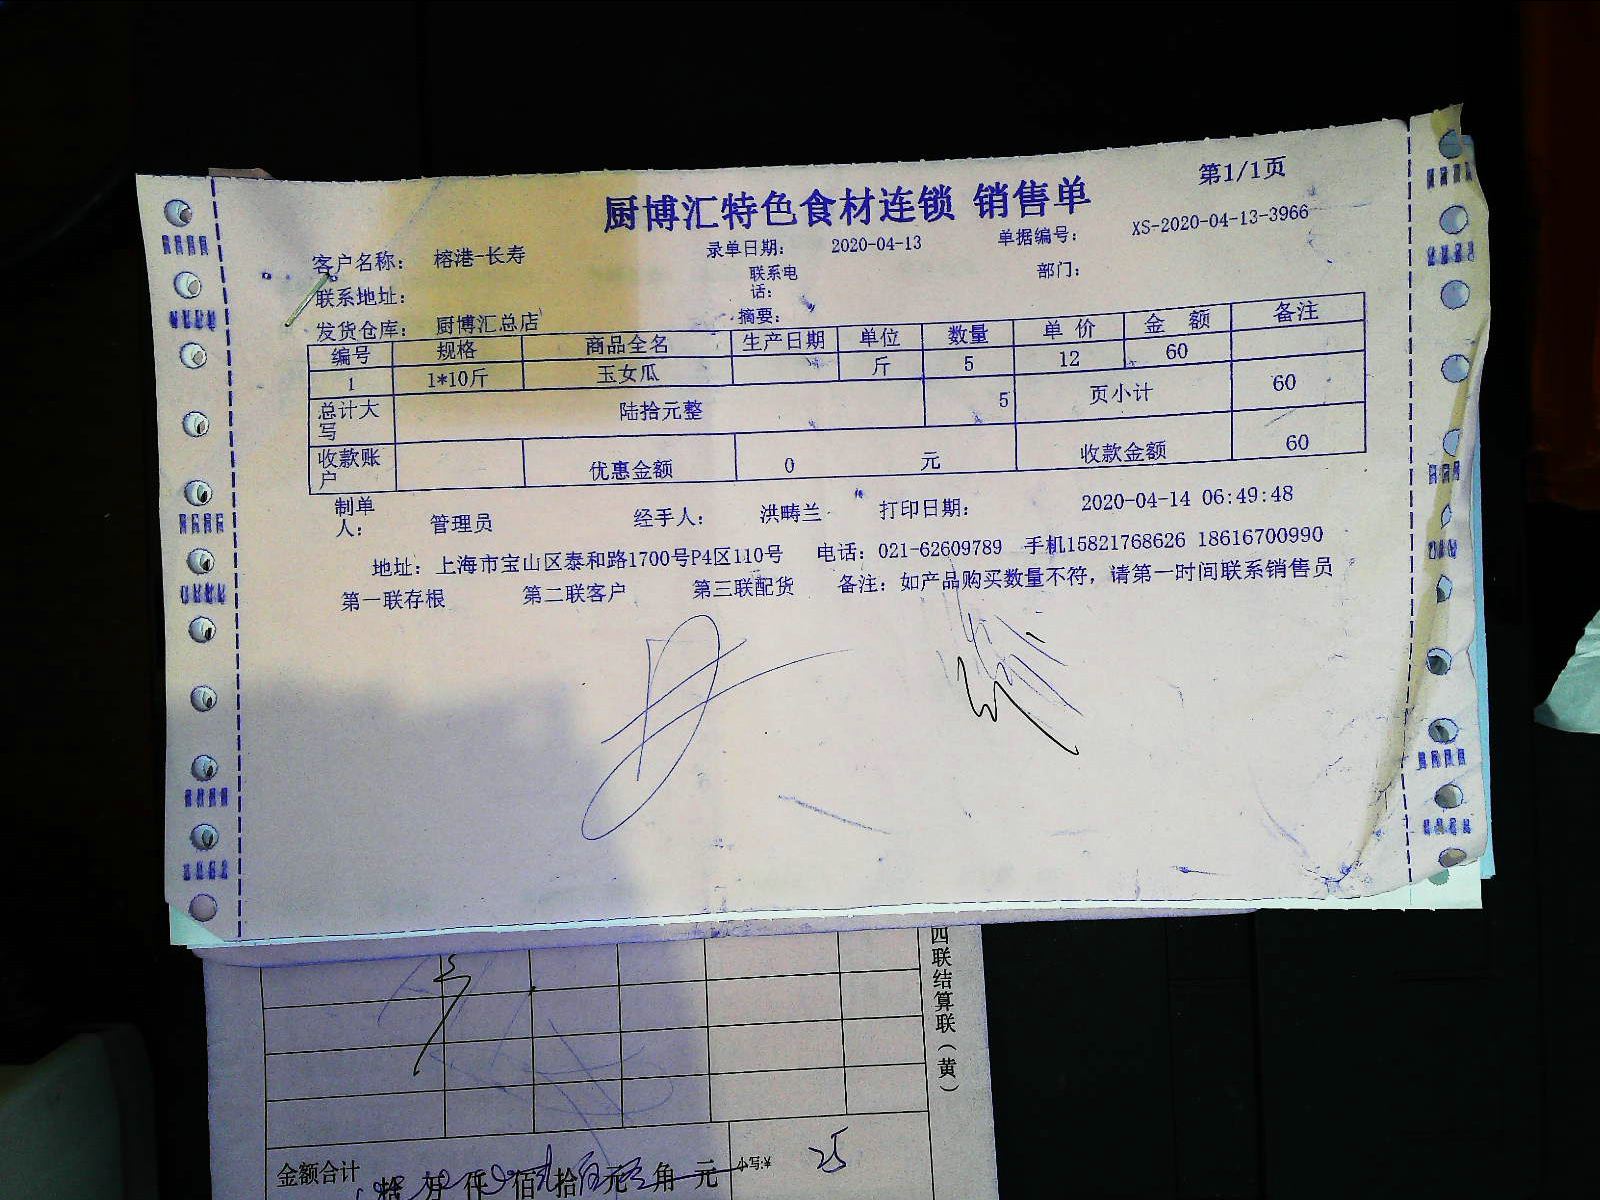 厨博汇特色食材连锁 销售单
第1/1页
客户名称： 榕港-长寿 录单日期： 2020-04-13 单据编号： XS-2020-04-13-3966
联系地址： 联系电话： 部门：
发货仓库： 厨博汇总店 摘要：
编号 规格 商品全名 生产日期 单位 数量 单价 金额 备注
1 1*10斤 玉女瓜 斤 5 12 60
总计大写 陆拾元整 5 页小计 60
收款账户 优惠金额 0 元 收款金额 60
制单人： 管理员 经手人： 洪畴兰 打印日期： 2020-04-14 06:49:48
地址：上海市宝山区泰和路1700号P4区110号 电话：021-62609789 手机15821768626 18616700990
第一联存根 第二联客户 第三联配货 备注：如产品购买数量不符，请第一时间联系销售员
四联结算联（黄）
金额合计 万 仟 佰 拾 元 角 元 小写:¥ 25